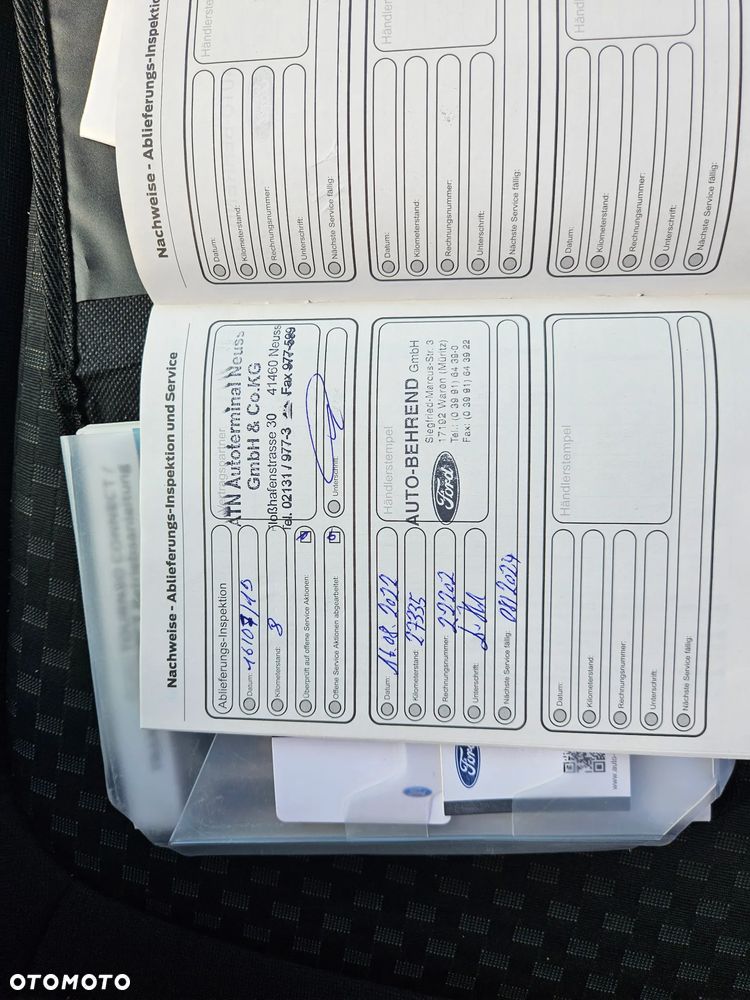 Nachweise - Ablieferungs-Inspektion
Händlerstempel
Datum:
Kilometerstand:
Rechnungsnummer:
Unterschrift:
Nächste Service fällig:
Händlerstempel
Datum:
Kilometerstand:
Rechnungsnummer:
Unterschrift:
Nächste Service fällig:
Datum:
Kilometerstand:
Rechnungsnummer:
Unterschrift:
Nächste Service fällig:
Nachweise - Ablieferungs-Inspektion und Service
Ablieferungs-Inspektion
Datum: 16/07/19
Kilometerstand: 8
Überprüft auf offene Service Aktionen:
Offene Service Aktionen abgearbeitet:
Unterschrift:
ATN Autoterminal Neuss
GmbH & Co.KG
Floßhafenstrasse 30 41460 Neuss
Tel. 02131 / 977-3 Fax 977-599
Datum: 16.08.2022
Kilometerstand: 27335
Rechnungsnummer: 22202
Unterschrift:
Nächste Service fällig: 08/2024
Händlerstempel
AUTO-BEHREND GmbH
Ford
Siegfried-Marcus-Str. 3
17192 Waren (Müritz)
Tel.: (0 39 91) 64 39-0
Fax: (0 39 91) 64 39 22
Händlerstempel
Datum:
Kilometerstand:
Rechnungsnummer:
Unterschrift:
Nächste Service fällig:
Ford
www.auto-
OTOMOTO